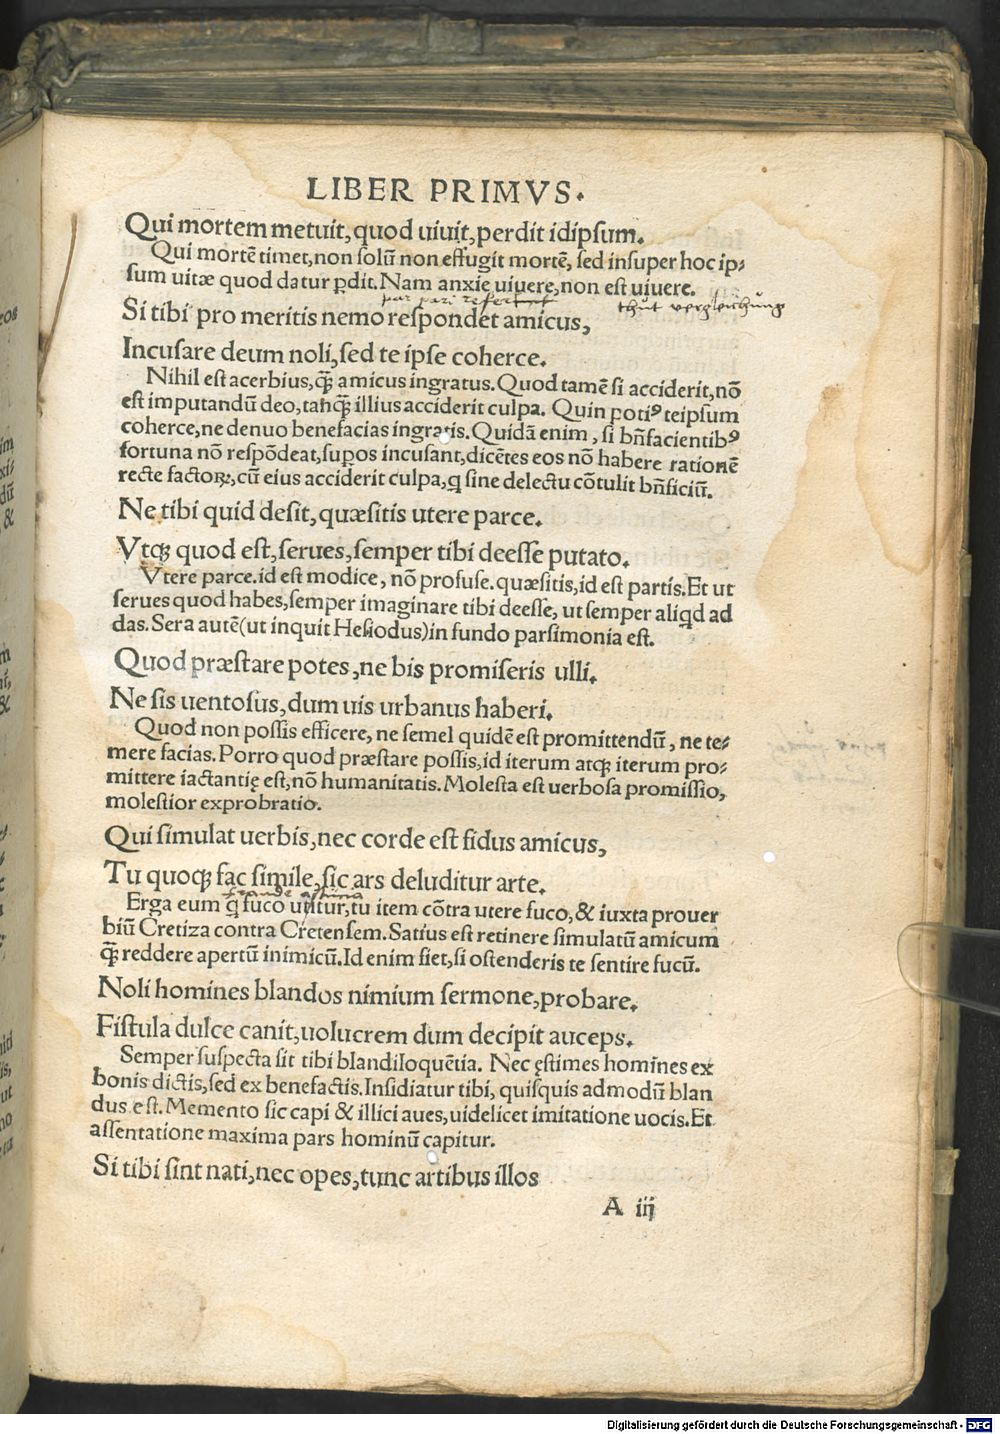 LIBER PRIMVS.
Qui mortem metuit, quod uiuit, perdit idipsum.
Qui mortẽ timet, non solũ non effugit mortẽ, sed insuper hoc ip-
sum uitæ quod datur ꝑdit. Nam anxie uiuere, non est uiuere.
par pari refertur
thut vergleichung
Si tibi pro meritis nemo respondet amicus,
Incusare deum noli, sed te ipse coherce.
Nihil est acerbius, q̃ꝫ amicus ingratus. Quod tamẽ si acciderit, nõ
est imputandũ deo, tanq̃ꝫ illius acciderit culpa. Quin potiꝰ teipsum
coherce, ne denuo benefacias ingratis. Quidã enim, si bñfacientibꝰ
fortuna nõ respõdeat, supos incusant, dicẽtes eos nõ habere rationẽ
recte factoꝝ, cũ eius acciderit culpa, q̃ sine delectu cõtulit bñficiũ.
Ne tibi quid desit, quæsitis utere parce.
Vtqꝫ quod est, serues, semper tibi deesse putato.
Vtere parce. id est modice, nõ profuse. quæsitis, id est partis. Et ut
serues quod habes, semper imaginare tibi deesse, ut semper aliqd ad
das. Sera autẽ (ut inquit Hesiodus) in fundo parsimonia est.
Quod præstare potes, ne bis promiseris ulli.
Ne sis uentosus, dum uis urbanus haberi.
Quod non possis efficere, ne semel quidẽ est promittendũ, ne te-
mere facias. Porro quod præstare possis, id iterum atqꝫ iterum pro-
mittere iactantię est, nõ humanitatis. Molesta est uerbosa promissio,
molestior exprobratio.
Qui simulat uerbis, nec corde est fidus amicus,
Tu quoqꝫ fac simile, sic ars deluditur arte.
fraude astutia
Erga eum q̃ fuco utitur, tu item cõtra utere fuco, & iuxta prouer
biũ Cretiza contra Cretensem. Satius est retinere simulatũ amicum
q̃ꝫ reddere apertũ inimicũ. Id enim fiet, si ostenderis te sentire fucũ.
Noli homines blandos nimium sermone, probare.
Fistula dulce canit, uolucrem dum decipit auceps.
Semper suspecta sit tibi blandiloquẽtia. Nec ęstimes homines ex
bonis dictis, sed ex benefactis. Insidiatur tibi, quisquis admodũ blan
dus est. Memento sic capi & illici aues, uidelicet imitatione uocis. Et
assentatione maxima pars hominũ capitur.
Si tibi sint nati, nec opes, tunc artibus illos
A iij
Digitalisierung gefördert durch die Deutsche Forschungsgemeinschaft - DFG